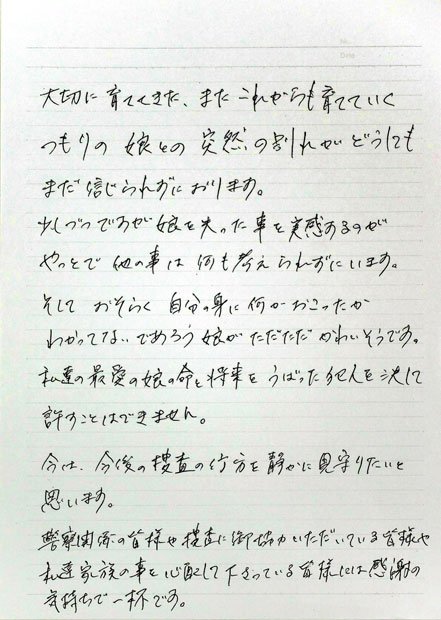 大切に育ててきた、また これからも育てていく
つもりの 娘との 突然の別れが どうしても
まだ 信じられずに おります。
少しづつですが 娘を失った事を実感するのが
やっとで 他の事は 何も考えられずにいます。
そして おそらく 自分の身に何がおこったか
わかってないであろう娘が ただただ かわいそうです。
私達の最愛の娘の命と将来を うばった犯人を 決して
許すことはできません。
今は、今後の捜査の行方を 静かに見守りたいと
思います。
警察関係の皆様や 捜査に御協力いただいている皆様や
私達家族の事を 心配して下さっている 皆様には 感謝の
気持ちで一杯です。